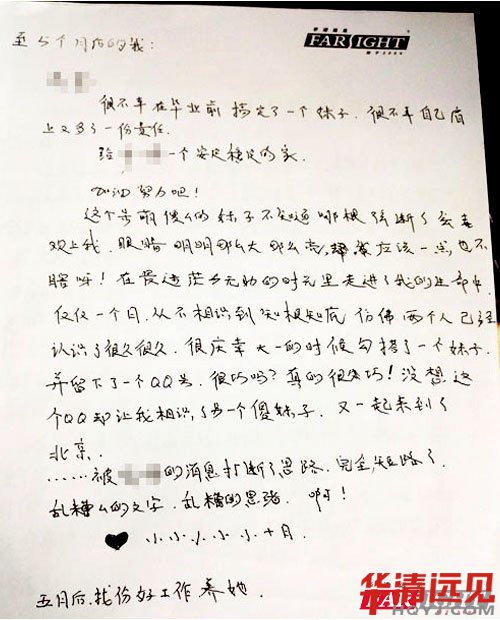 至5个月后的我：
FARSIGHT
很不幸在毕业前搞定了一个妹子．很不幸自己肩
上又多了一份责任．
给 一个安定稳定的家．
加油努力吧！
这个呆萌傻傻的妹子不知道哪根弦断了会喜
欢上我．眼睛明明那么大那么亮，应该一点也不
瞎呀！在最迷茫与无助的时光里走进了我的生命中
仅仅一个月．从不相识到知根知底 仿佛两个人已经
认识了很久很久．很庆幸大一的时候勾搭了一个妹子．
并留下了一个QQ号．很巧吗？真的很巧！没想这
个QQ却让我相识了另一个傻妹子．又一起来到了
北京．
……被 的消息打断了思路．完全短路了．
乱糟糟的文字．乱糟糟的思绪．啊！
♥ 小小小小小十月．
五月后．找份好工作养她．
华清远见
FAR
HQYJ.COM